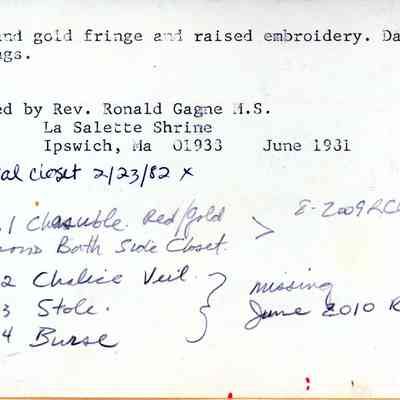 and gold fringe and raised embroidery. Da
ngs.
ed by Rev. Ronald Gagne M.S.
La Salette Shrine
Ipswich, Ma 01933 June 1981
al closet 2/23/82 x
.1 Chasuble Red/Gold > E-2009RC
Both Side Closet.
2 Chalice Veil.
3 Stole. } missing
4 Burse June 2010 R